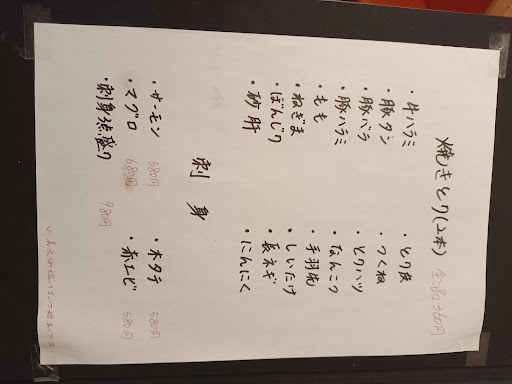 焼きとり(2本) 全品360円
・牛ハラミ
・豚タン
・豚バラ
・豚ハラミ
・もも
・ねぎま
・ぼんじり
・砂肝
・とり皮
・つくね
・とりハツ
・なんこつ
・手羽先
・しいたけ
・長ネギ
・にんにく
刺身
・サーモン 580円
・マグロ 680円
・刺身3点盛り 980円
・ホタテ 580円
・赤エビ 580円